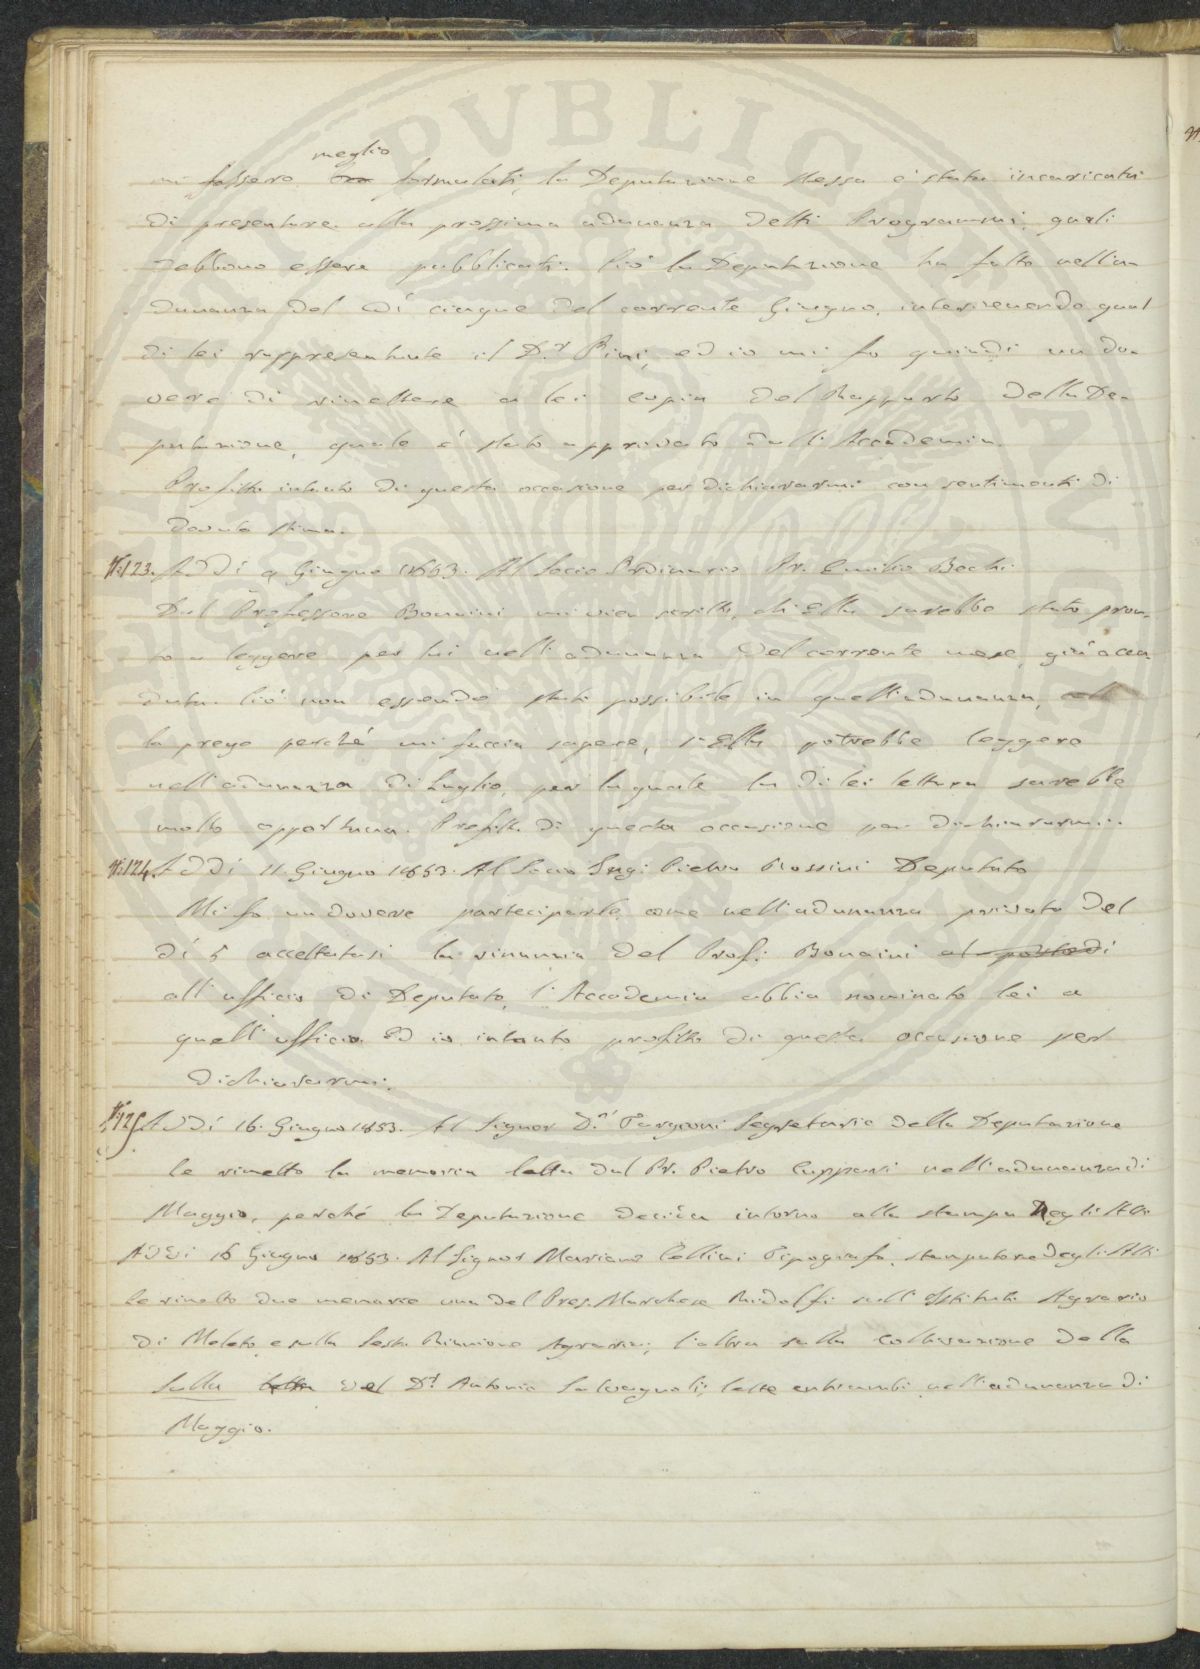 meglio
mi fossero formulati, la Deputazione stessa è stata incaricata
di presentare alla prossima adunanza detti Programmi, quali
debbono essere pubblicati. Ciò la Deputazione ha fatto nell'a-
dunanza del dì cinque del corrente Giugno, intervenendo qual
di lei rappresentante il D.r Pini, ed io mi fo quindi un do-
vere di rimettere a lei copia del Rapporto della De-
putazione, quale è stato approvato dall'Accademia.
Profitto intanto di questa occasione per dichiararmi con sentimenti di
dovuta stima.
N.123. Addì 9 Giugno 1853. Al Socio Ordinario Pr. Emilio Bechi.
Dal Professore Bonaini mi vien scritto, ch'Ella sarebbe stato pron-
to a leggere per lui nell'adunanza del corrente mese, già acca-
duta. Ciò non essendo stato possibile in quell'adunanza,
la prego perché mi faccia sapere, s'Ella potrebbe leggere
nell'adunanza di Luglio, per la quale la di lei lettura sarebbe
molto opportuna. Profitto di questa occasione per dichiararmi..
N.124. Addì 11 Giugno 1853. Al Socio Luigi Pietro Rossini Deputato
Mi fo un dovere parteciparle come nell'adunanza privata del
dì 5 accettatasi la rinunzia del Prof. Bonaini al posto di
all'ufficio di Deputato, l'Accademia abbia nominato lei a
quell'ufficio. Ed io intanto profitto di questa occasione per
dichiararmi.
N.125. Addì 16. Giugno 1853. Al Signor D.r Targioni Segretario della Deputazione
le rimetto la memoria letta dal Pr. Pietro Cuppari nell'adunanza di
Maggio, perché la Deputazione decida intorno alla stampa Negli Atti
Addì 16 Giugno 1853. Al Signor Mariano Cellini Tipografo, stampatore degli Atti
le rimetto due memorie una del Pres. Marchese Ridolfi sull'Istituto Agrario
di Meleto, e sulla Sesta Riunione Agraria; l'altra sulla coltivazione della
Sulla letta del D.r Antonio Salvagnoli, lette entrambi nell'adunanza di
Maggio.
PVBLICAE